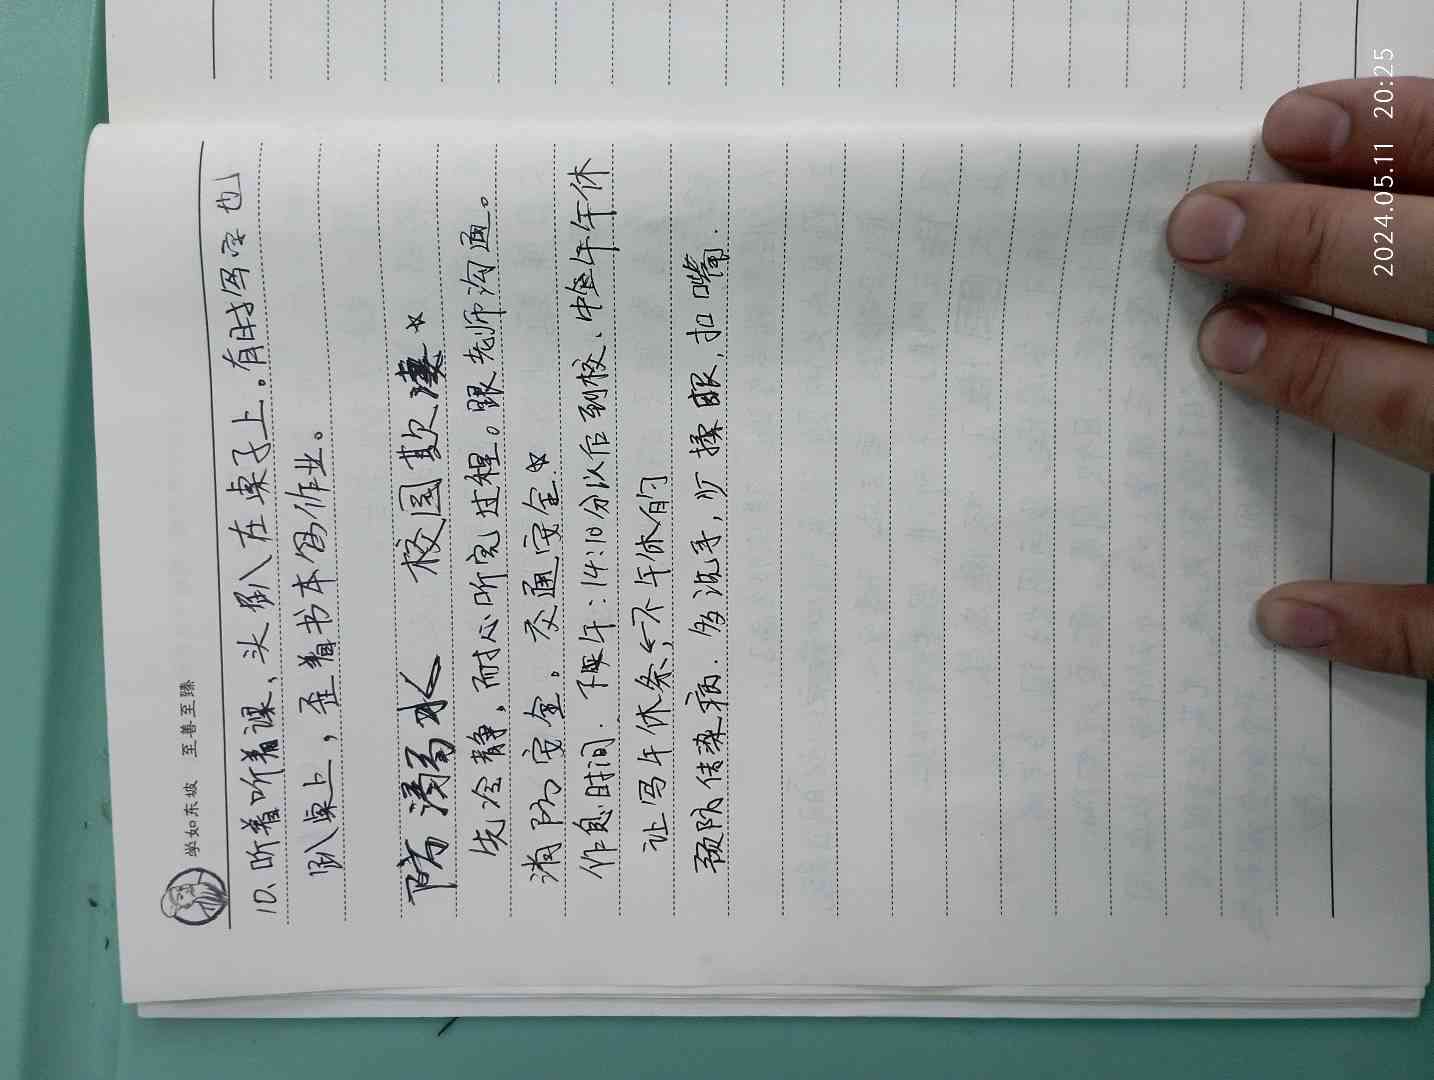 学如东坡 至善至臻
10、听着听着课、头趴在桌子上。有时写字也
趴桌上，歪着书本写作业。
防溺水 校园欺凌☆
先冷静，耐心听完过程。跟老师沟通。
消防安全。交通安全☆
作息时间. 下午:14:10分以后到校、中午午休
让写午休条←不午休的
预防传染病. 多洗手, 少揉眼, 扣嘴.
2024.05.11 20:25